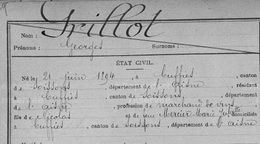 Grillot
Nom :
Prénoms : Georges Surnoms :
ÉTAT CIVIL.
Né le 21 juin 1894, à Cuffies, canton
de Soissons, département de l'Aisne, résidant
à Cuffies, canton de Soissons, département
de l'Aisne, profession de marchand de vins,
fils de Nicolas et de Mercier Marie
à Cuffies, canton de Soissons, département de l'Aisne